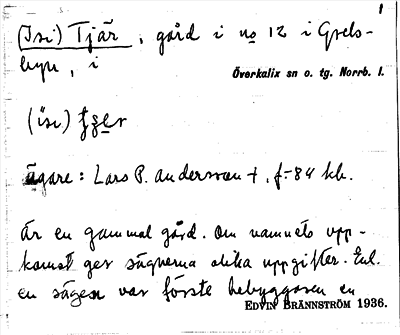 1
(Isi) Tjär, gård i no 12 i Grels-
byn, i
Överkalix sn o. tg. Norrb. l.
(ɩ̈sɩ)
ägare: Lars P. Andersson +, f. -84 kh.
Är en gammal gård. Om namnets upp-
komst ger sägnerna olika uppgifter. Enl.
en sägen var förste bebyggaren en
EDVIN BRÄNNSTRÖM 1936.